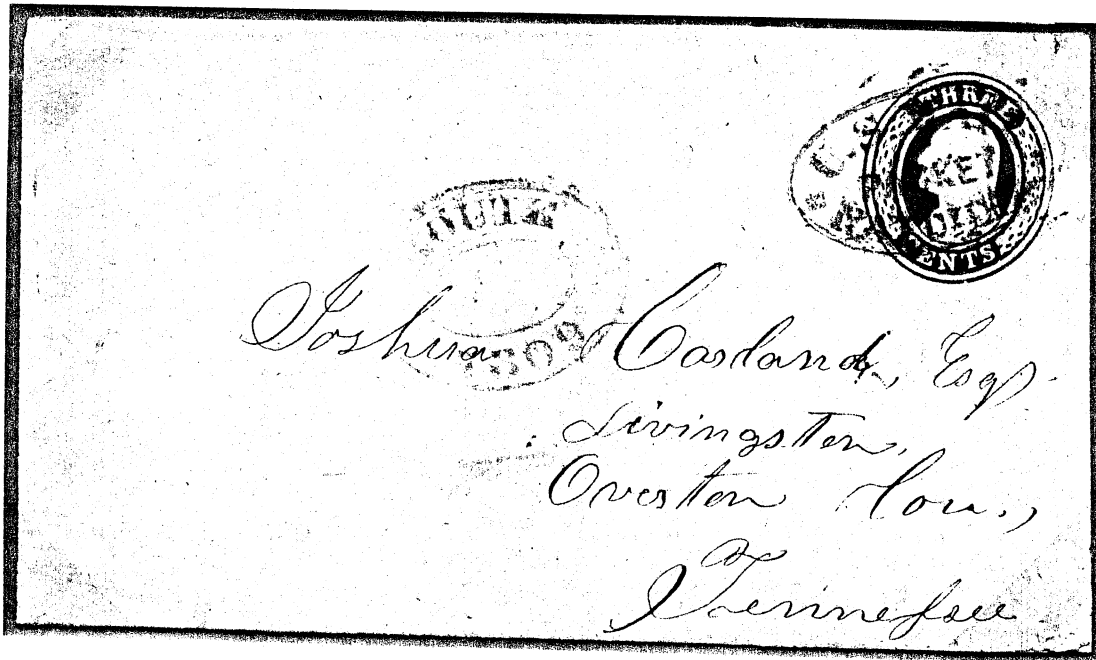 THREE
U.S.
CENTS
Joshua Casland, Esq.
Livingston,
Overton Cou.,
Tennessee